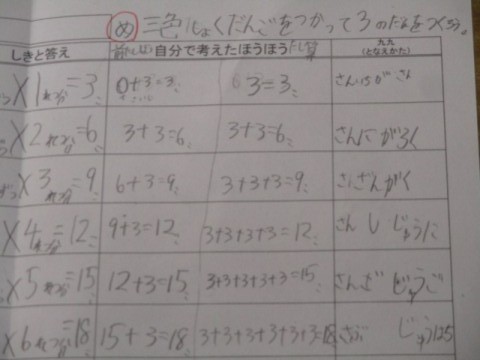 め 三色しょくだんごをつかって3のだんをつくろう。
しきと答え 自分で考えたほうほう たし算 九九(となえかた)
×1=3 0+3=3 3=3 さんいちが さん
×2=6 3+3=6 3+3=6 さんにがろく
×3=9 6+3=9 3+3+3=9 さざんがく
×4=12 9+3=12 3+3+3+3=12 さんし じゅうに
×5=15 12+3=15 3+3+3+3+3=15 さんご じゅうご
×6=18 15+3=18 3+3+3+3+3+3=18 さぶ